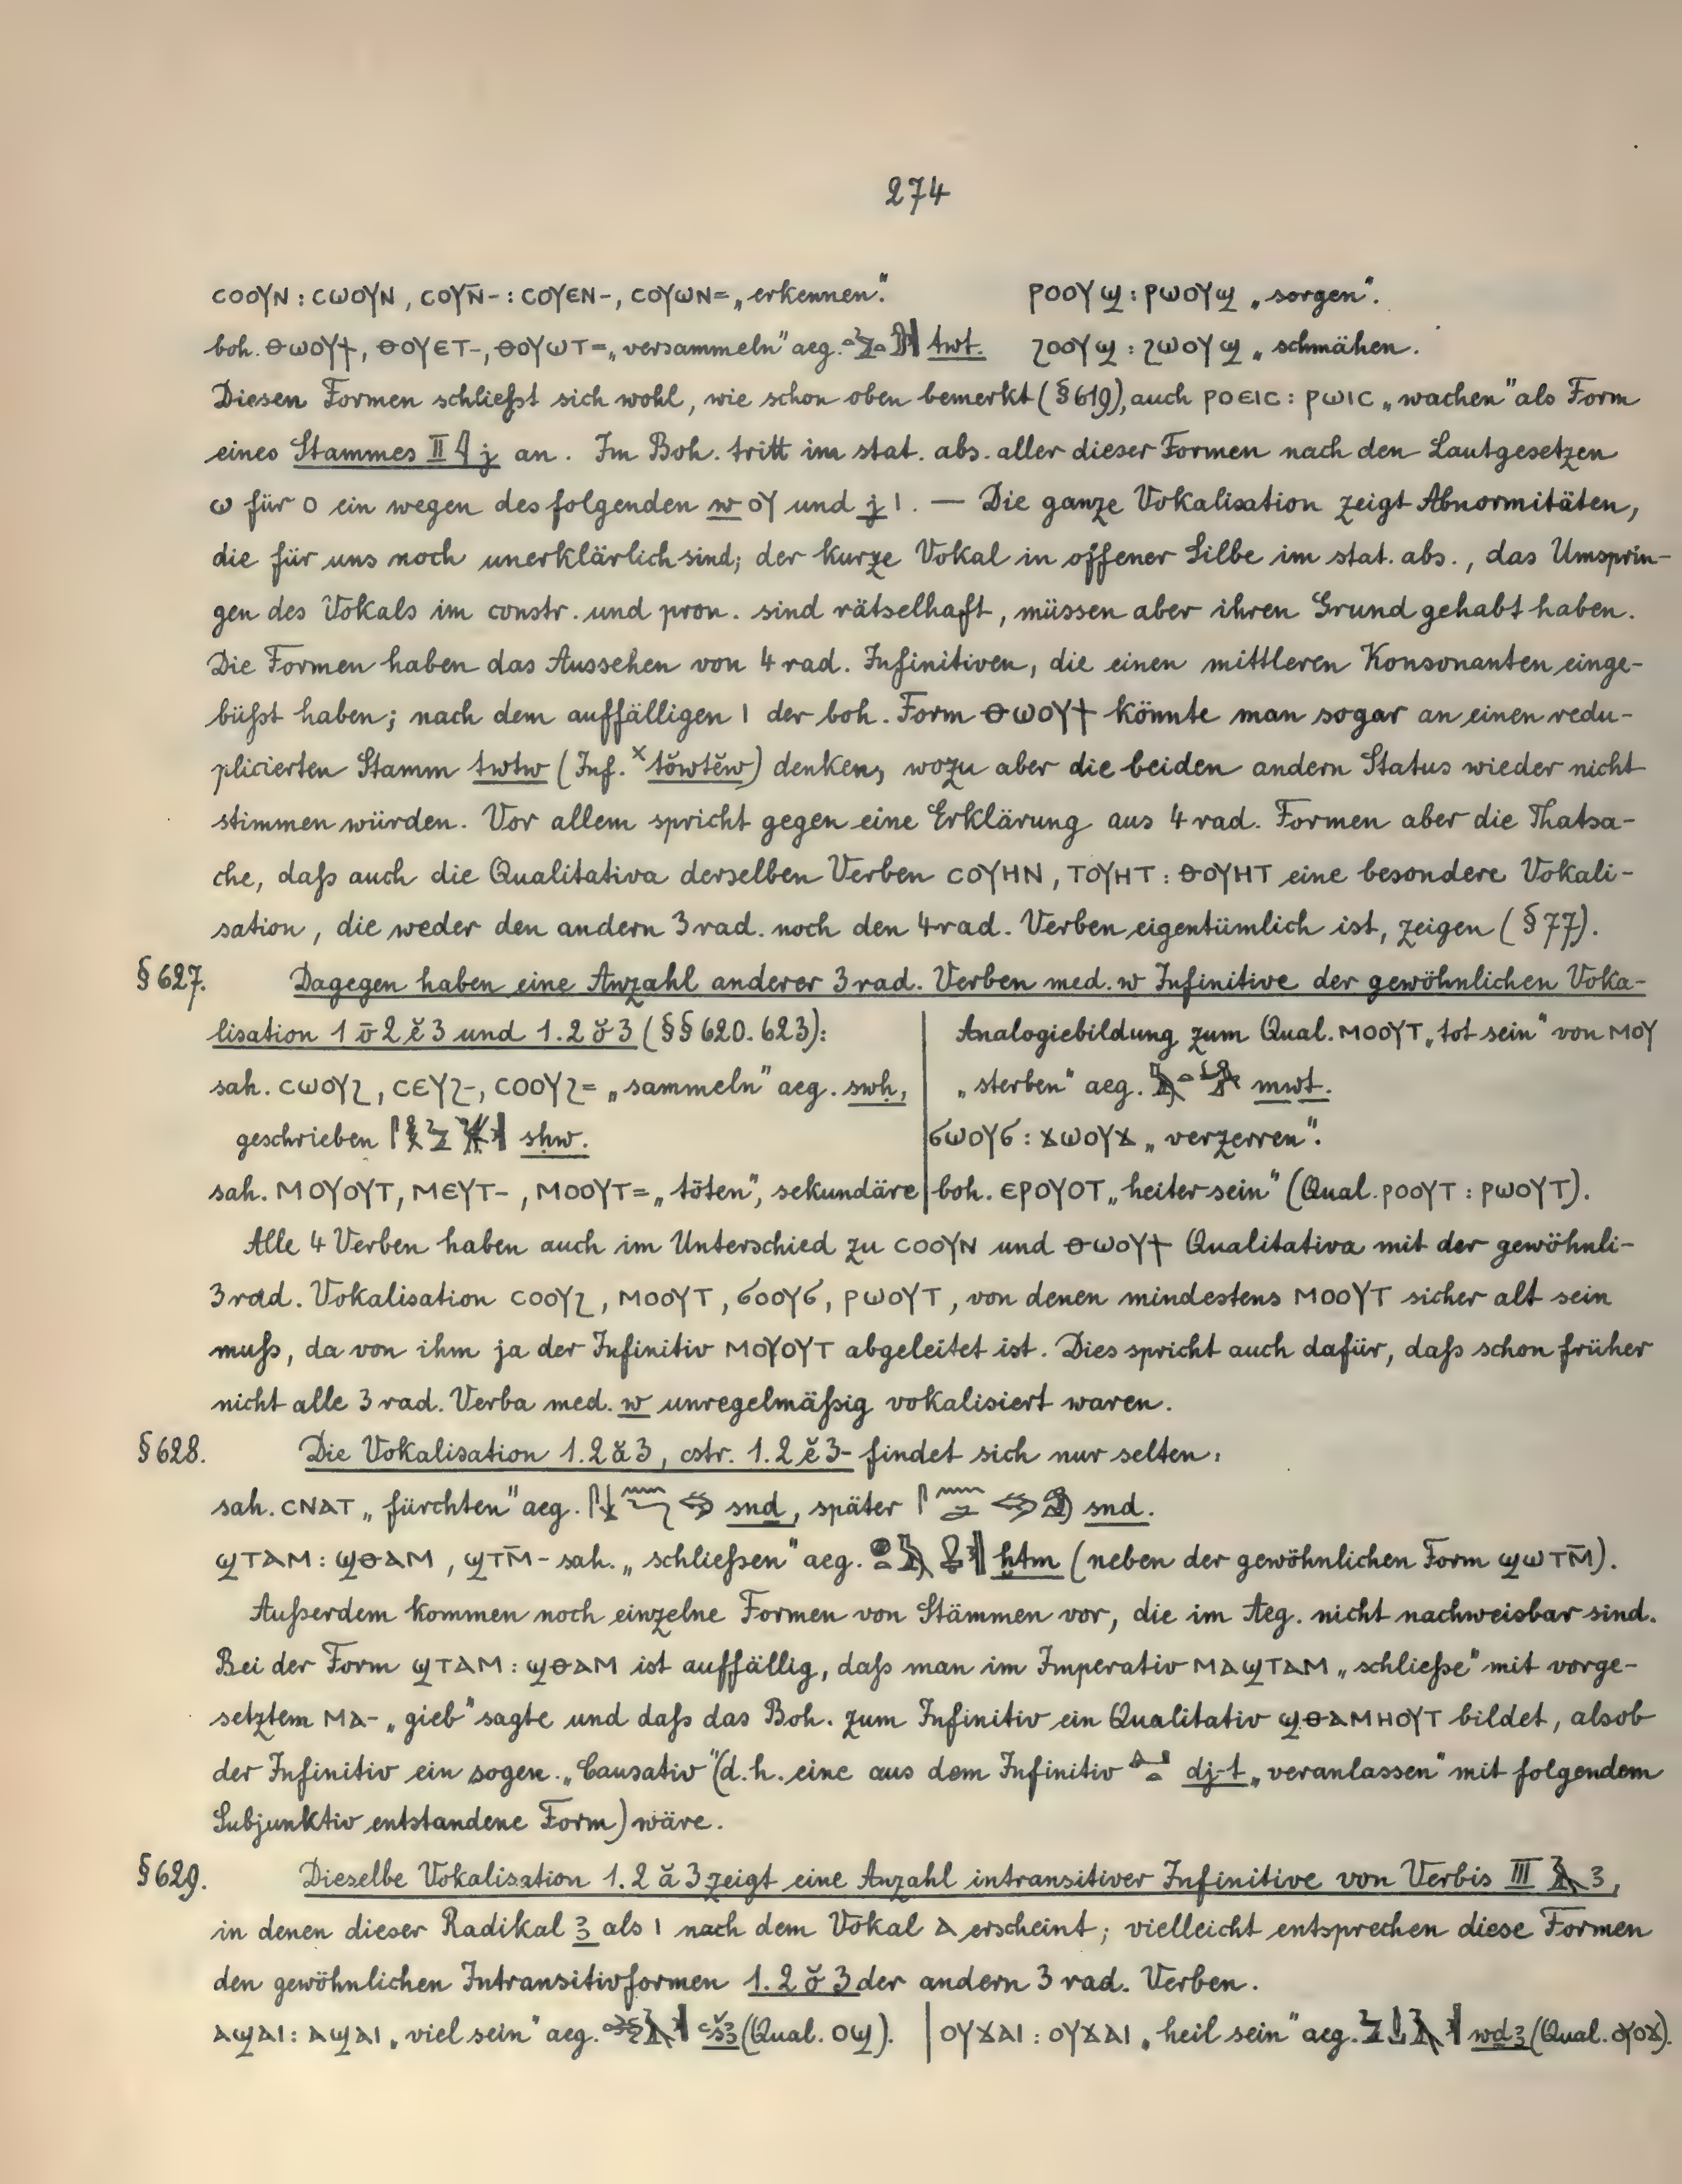 274
ⲥⲟⲟⲩⲛ : ⲥⲱⲟⲩⲛ, ⲥⲟⲩⲛ̄- : ⲥⲟⲩⲉⲛ-, ⲥⲟⲩⲱⲛ= „erkennen“. ⲣⲟⲟⲩϣ : ⲣⲱⲟⲩϣ „sorgen“.
boh. ⲑⲱⲟⲩϯ, ⲑⲟⲩⲉⲧ-, ⲑⲟⲩⲱⲧ= „versammeln“ aeg. twt. ϩⲟⲟⲩϣ : ϩⲱⲟⲩϣ „schmähen.
Diesen Formen schließt sich wohl, wie schon oben bemerkt (§ 619), auch ⲣⲟⲉⲓⲥ : ⲣⲱⲓⲥ „wachen“ als Form
eines Stammes II 𓇋 j an. Im Boh. tritt im stat. abs. aller dieser Formen nach den Lautgesetzen
ⲱ für ⲟ ein wegen des folgenden w ⲟⲩ und j ⲓ. — Die ganze Vokalisation zeigt Abnormitäten,
die für uns noch unerklärlich sind; der kurze Vokal in offener Silbe im stat. abs., das Umsprin-
gen des Vokals im constr. und pron. sind rätselhaft, müssen aber ihren Grund gehabt haben.
Die Formen haben das Aussehen von 4 rad. Infinitiven, die einen mittleren Konsonanten einge-
büßt haben; nach dem auffälligen ⲓ der boh. Form ⲑⲱⲟⲩϯ könnte man sogar an einen redu-
plicierten Stamm twtw (Inf. ˣtŏwtĕw) denken, wozu aber die beiden andern Status wieder nicht
stimmen würden. Vor allem spricht gegen eine Erklärung aus 4 rad. Formen aber die Thatsa-
che, daß auch die Qualitativa derselben Verben ⲥⲟⲩⲏⲛ, ⲧⲟⲩⲏⲧ : ⲑⲟⲩⲏⲧ eine besondere Vokali-
sation, die weder den andern 3 rad. noch den 4 rad. Verben eigentümlich ist, zeigen (§ 77).
§ 627. Dagegen haben eine Anzahl anderer 3 rad. Verben med. w Infinitive der gewöhnlichen Voka-
lisation 1 ō 2 ĕ 3 und 1. 2 ŏ 3 (§§ 620. 623):
sah. ⲥⲱⲟⲩϩ, ⲥⲉⲩϩ-, ⲥⲟⲟⲩϩ= „sammeln“ aeg. swḥ,
geschrieben sḥw.
sah. ⲙⲟⲩⲟⲩⲧ, ⲙⲉⲩⲧ-, ⲙⲟⲟⲩⲧ= „töten“, sekundäre
Analogiebildung zum Qual. ⲙⲟⲟⲩⲧ „tot sein“ von ⲙⲟⲩ
„sterben“ aeg. mwt.
ϭⲱⲟⲩϭ : ϫⲱⲟⲩϫ „verzerren“.
boh. ⲉⲣⲟⲩⲟⲧ „heiter sein“ (Qual. ⲣⲟⲟⲩⲧ : ⲣⲱⲟⲩⲧ).
Alle 4 Verben haben auch im Unterschied zu ⲥⲟⲟⲩⲛ und ⲑⲱⲟⲩϯ Qualitativa mit der gewöhnli-
3 rad. Vokalisation ⲥⲟⲟⲩϩ, ⲙⲟⲟⲩⲧ, ϭⲟⲟⲩϭ, ⲣⲱⲟⲩⲧ, von denen mindestens ⲙⲟⲟⲩⲧ sicher alt sein
muß, da von ihm ja der Infinitiv ⲙⲟⲩⲟⲩⲧ abgeleitet ist. Dies spricht auch dafür, daß schon früher
nicht alle 3 rad. Verba med. w unregelmäßig vokalisiert waren.
§ 628. Die Vokalisation 1. 2 ă 3, cstr. 1. 2 ĕ 3- findet sich nur selten:
sah. ⲥⲛⲁⲧ „fürchten“ aeg. snḏ, später snd.
ϣⲧⲁⲙ : ϣⲑⲁⲙ, ϣⲧⲙ̄- sah. „schließen“ aeg. ḫtm (neben der gewöhnlichen Form ϣⲱⲧⲙ̄).
Außerdem kommen noch einzelne Formen von Stämmen vor, die im Aeg. nicht nachweisbar sind.
Bei der Form ϣⲧⲁⲙ : ϣⲑⲁⲙ ist auffällig, daß man im Imperativ ⲙⲁϣⲧⲁⲙ „schließe“ mit vorge-
setztem ⲙⲁ- „gieb“ sagte und daß das Boh. zum Infinitiv ein Qualitativ ϣⲑⲁⲙⲏⲟⲩⲧ bildet, als ob
der Infinitiv ein sogen. „Causativ“ (d. h. eine aus dem Infinitiv dj-t „veranlassen“ mit folgendem
Subjunktiv entstandene Form) wäre.
§ 629. Dieselbe Vokalisation 1. 2 ă 3 zeigt eine Anzahl intransitiver Infinitive von Verbis III 𓄿 ꜣ,
in denen dieser Radikal ꜣ als ⲓ nach dem Vokal ⲁ erscheint; vielleicht entsprechen diese Formen
den gewöhnlichen Intransitivformen 1. 2 ŏ 3 der andern 3 rad. Verben.
ⲁϣⲁⲓ : ⲁϣⲁⲓ „viel sein“ aeg. ꜥšꜣ (Qual. ⲟϣ). ⲟⲩϫⲁⲓ : ⲟⲩϫⲁⲓ „heil sein“ aeg. wḏꜣ (Qual. ⲟⲩⲟϫ).